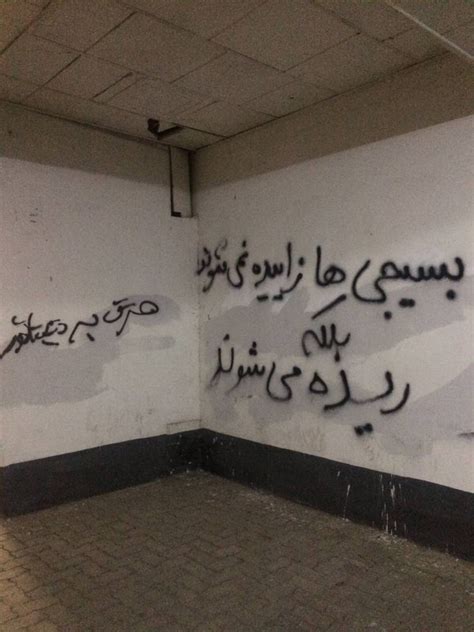 بسیجی ها زاییده نمی شوند
بلکه
ریده می شوند
مرگ بر دیکتاتور